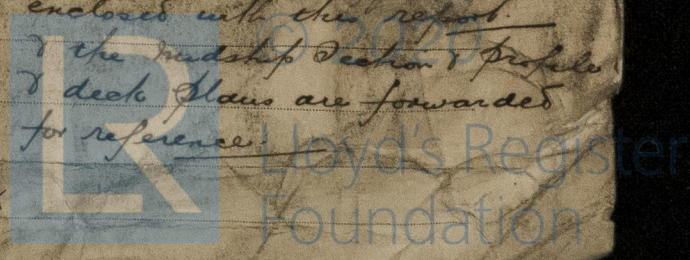 enclosed with this report.
& the midship Section & profile
& deck plans are forwarded
for reference.
© 2020
LR
Lloyd's Register
Foundation